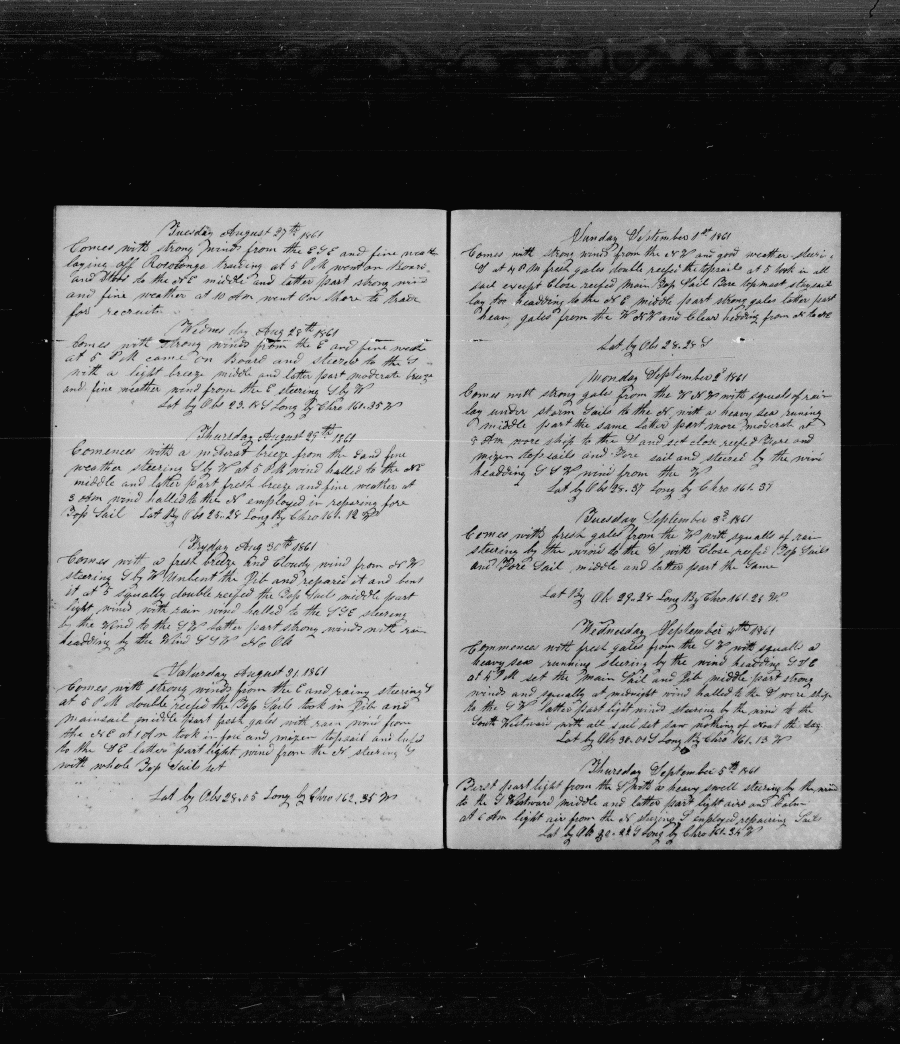 Tuesday August 27th 1861
Comes with strong winds from the E S E and fine weath
laying off Rorotonga trading at 5 P M went on Board
and stood to the N E middle and latter part strong wind
and fine weather at 10 A m went On Shore to trade
for recruits
Wednesday Aug 28th 1861
Comes with strong winds from the E and fine weath
at 5 P M came on Board and steered to the S
with a light breeze middle and latter part moderate breeze
and fine weather wind from the E steering S by W
Lat by Obs 23.18 S Long by Chro 161.35 W
Thursday August 29th 1861
Comences with a moderat breeze from the E and fine
weather steering S by W at 5 P M wind halled to the NE
middle and latter part fresh breeze and fine weather at
3 A m wind halled to the N employed in repairing fore
Top Sail Lat By Obs 25.28 Long By Chro 161.12 W
Fryday Aug 30th 1861
Comes with a fresh breeze and Cloudy wind from N W
steering S by W Unbent the Jib and repared it and bent
it at 5 squally double reefed the Top Sails middle part
light winds with rain wind halled to the S S E steering
by the Wind to the S W latter part strong winds with rain
headding by the Wind S S W No Obs
Saturday August 31 1861
Comes with strong winds from the E and rainy steering S
at 5 P M double reefed the Top Sails took in Jib and
mainsail middle part fresh gales with rain wind from
the N E at 1 A m took in fore and mizen topsail and lufed
to the S E latter part light wind from the N steering S
with whole Top Sails set
Lat by Obs 28.05 Long by Chro 162.35 W
Sunday September 1st 1861
Comes with strong winds from the N W and good weather steering
S at 4 P M fresh gales double reefed the topsails at 5 took in all
sail except Close reefed Main Top Sail Fore topmast staysail
lay too headding to the N E middle part strong gales latter part
heavy gales from the W N W and Clear hedding from N to NE
Lat by Obs 28.28 S
Monday September 2d 1861
Comes with strong gales from the W N W with squals of rain
lay under storm Sails to the N with a heavy sea runing
middle part the same latter part more moderat at
8 A m wore ship to the S and set close reefed Fore and
mizen top sails and Fore sail and steered by the wind
headding S S W wind from the W
Lat by Obs 28.37 Long by Chro 161.37
Tuesday September 3d 1861
Comes with fresh gales from the W with squalls of rain
steering by the wind to the S with Close reefed Top Sails
and Fore Sail middle and latter part the Same
Lat By Obs 29.28 Long By Chro 161.23 W
Wednesday September 4th 1861
Commences with fresh gales from the S W with squalls a
heavy sea running steering by the wind headding S S E
at 4 P M set the Main Sail and Jib middle part strong
winds and squally at midnight wind halled to the S wore ship
to the S W latter part light wind steering by the wind to the
South Westward with all sail set saw nothing of Neat the Sey
Lat by Obs 30.01 S Long By Chro 161.13 W
Thursday September 5th 1861
First part light from the S with a heavy swell steering by the wind
to the S Westward middle and latter part light airs and Calm
at 6 A m light air from the N steering S employed repairing Sails
Lat by Obs 30.23 S Long by Chro 161.34 W